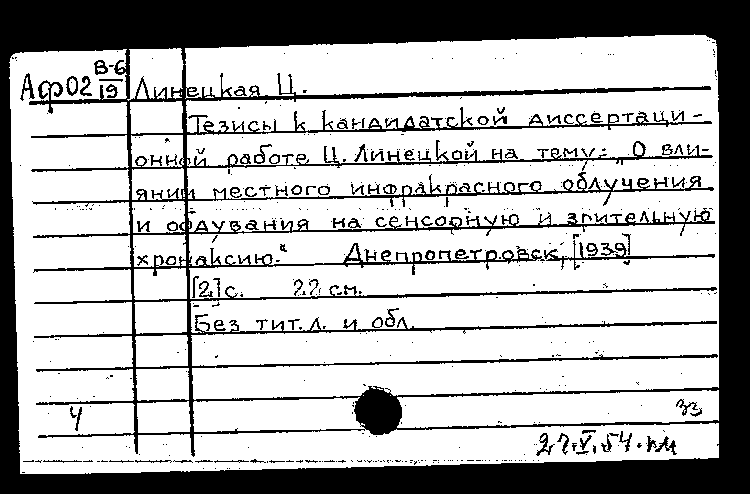 Аф02 В-6/19 Линецкая, Ц.
Тезисы к кандидатской диссертаци-
онной работе Ц. Линецкой на тему: „О вли-
янии местного инфракрасного облучения
и обдувания на сенсорную и зрительную
хронаксию.“ Днепропетровск, [1939]
[2] с. 22 см.
Без тит. л. и обл.
4 33
27.V.54.